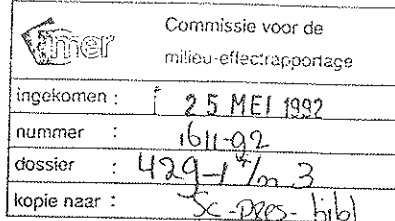 mer
Commissie voor de
milieu-effectrapportage
ingekomen : 25 MEI 1992
nummer : 1611-92
dossier : 429-1 t/m 3
kopie naar : Sc-pres-bibl